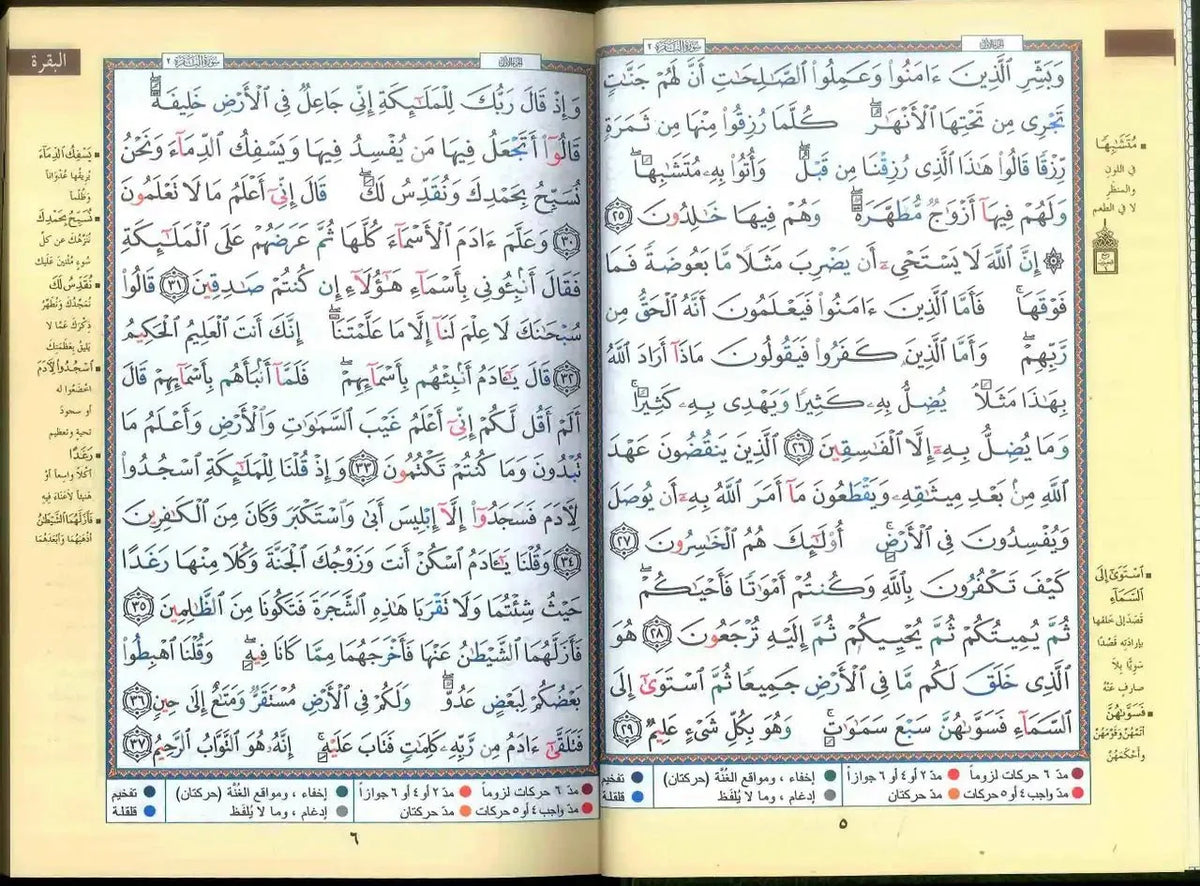 سورة البقرة ٢
الجزء الأول
وَبَشِّرِ ٱلَّذِينَ ءَامَنُوا۟ وَعَمِلُوا۟ ٱلصَّـٰلِحَـٰتِ أَنَّ لَهُمْ جَنَّـٰتٍ
تَجْرِى مِن تَحْتِهَا ٱلْأَنْهَـٰرُ ۖ كُلَّمَا رُزِقُوا۟ مِنْهَا مِن ثَمَرَةٍ
رِّزْقًا قَالُوا۟ هَـٰذَا ٱلَّذِى رُزِقْنَا مِن قَبْلُ ۖ وَأُتُوا۟ بِهِۦ مُتَشَـٰبِهًا ۖ
وَلَهُمْ فِيهَآ أَزْوَٰجٌ مُّطَهَّرَةٌ ۖ وَهُمْ فِيهَا خَـٰلِدُونَ ٢٥
۞ إِنَّ ٱللَّهَ لَا يَسْتَحْىِۦٓ أَن يَضْرِبَ مَثَلًا مَّا بَعُوضَةً فَمَا
فَوْقَهَا ۚ فَأَمَّا ٱلَّذِينَ ءَامَنُوا۟ فَيَعْلَمُونَ أَنَّهُ ٱلْحَقُّ مِن
رَّبِّهِمْ ۖ وَأَمَّا ٱلَّذِينَ كَفَرُوا۟ فَيَقُولُونَ مَاذَآ أَرَادَ ٱللَّهُ
بِهَـٰذَا مَثَلًا ۘ يُضِلُّ بِهِۦ كَثِيرًا وَيَهْدِى بِهِۦ كَثِيرًا ۚ
وَمَا يُضِلُّ بِهِۦٓ إِلَّا ٱلْفَـٰسِقِينَ ٢٦ ٱلَّذِينَ يَنقُضُونَ عَهْدَ
ٱللَّهِ مِنۢ بَعْدِ مِيثَـٰقِهِۦ وَيَقْطَعُونَ مَآ أَمَرَ ٱللَّهُ بِهِۦٓ أَن يُوصَلَ
وَيُفْسِدُونَ فِى ٱلْأَرْضِ ۚ أُو۟لَـٰٓئِكَ هُمُ ٱلْخَـٰسِرُونَ ٢٧
كَيْفَ تَكْفُرُونَ بِٱللَّهِ وَكُنتُمْ أَمْوَٰتًا فَأَحْيَـٰكُمْ ۖ
ثُمَّ يُمِيتُكُمْ ثُمَّ يُحْيِيكُمْ ثُمَّ إِلَيْهِ تُرْجَعُونَ ٢٨ هُوَ
ٱلَّذِى خَلَقَ لَكُم مَّا فِى ٱلْأَرْضِ جَمِيعًا ثُمَّ ٱسْتَوَىٰٓ إِلَى
ٱلسَّمَآءِ فَسَوَّىٰهُنَّ سَبْعَ سَمَـٰوَٰتٍ ۚ وَهُوَ بِكُلِّ شَىْءٍ عَلِيمٌ ٢٩
مُتَشَابِهًا
في اللون
والمنظر
لا في الطعم
ٱسْتَوَىٰٓ إِلَى
ٱلسَّمَآءِ
قَصَدَ إلى خلقها
بإرادته قصداً
سَوِيًّا بلا
صارفٍ عنه
فَسَوَّىٰهُنَّ
أتمّهنّ وقوّمهنّ
وأحكمهنّ
مدّ ٦ حركات لزوماً
مدّ ٢ أو ٤ أو ٦ جوازاً
إخفاء ، ومواقع الغُنَّة (حركتان)
تفخيم
مدّ واجب ٤ أو ٥ حركات
مدّ حركتان
إدغام ، وما لا يُلفَظ
قلقلة
٥
البقرة
سورة البقرة ٢
الجزء الأول
وَإِذْ قَالَ رَبُّكَ لِلْمَلَـٰٓئِكَةِ إِنِّى جَاعِلٌ فِى ٱلْأَرْضِ خَلِيفَةً ۖ
قَالُوٓا۟ أَتَجْعَلُ فِيهَا مَن يُفْسِدُ فِيهَا وَيَسْفِكُ ٱلدِّمَآءَ وَنَحْنُ
نُسَبِّحُ بِحَمْدِكَ وَنُقَدِّسُ لَكَ ۖ قَالَ إِنِّىٓ أَعْلَمُ مَا لَا تَعْلَمُونَ
٣٠ وَعَلَّمَ ءَادَمَ ٱلْأَسْمَآءَ كُلَّهَا ثُمَّ عَرَضَهُمْ عَلَى ٱلْمَلَـٰٓئِكَةِ
فَقَالَ أَنۢبِـُٔونِى بِأَسْمَآءِ هَـٰٓؤُلَآءِ إِن كُنتُمْ صَـٰدِقِينَ ٣١ قَالُوا۟
سُبْحَـٰنَكَ لَا عِلْمَ لَنَآ إِلَّا مَا عَلَّمْتَنَآ ۖ إِنَّكَ أَنتَ ٱلْعَلِيمُ ٱلْحَكِيمُ
٣٢ قَالَ يَـٰٓـَٔادَمُ أَنۢبِئْهُم بِأَسْمَآئِهِمْ ۖ فَلَمَّآ أَنۢبَأَهُم بِأَسْمَآئِهِمْ قَالَ
أَلَمْ أَقُل لَّكُمْ إِنِّىٓ أَعْلَمُ غَيْبَ ٱلسَّمَـٰوَٰتِ وَٱلْأَرْضِ وَأَعْلَمُ مَا
تُبْدُونَ وَمَا كُنتُمْ تَكْتُمُونَ ٣٣ وَإِذْ قُلْنَا لِلْمَلَـٰٓئِكَةِ ٱسْجُدُوا۟
لِـَٔادَمَ فَسَجَدُوٓا۟ إِلَّآ إِبْلِيسَ أَبَىٰ وَٱسْتَكْبَرَ وَكَانَ مِنَ ٱلْكَـٰفِرِينَ
٣٤ وَقُلْنَا يَـٰٓـَٔادَمُ ٱسْكُنْ أَنتَ وَزَوْجُكَ ٱلْجَنَّةَ وَكُلَا مِنْهَا رَغَدًا
حَيْثُ شِئْتُمَا وَلَا تَقْرَبَا هَـٰذِهِ ٱلشَّجَرَةَ فَتَكُونَا مِنَ ٱلظَّـٰلِمِينَ ٣٥
فَأَزَلَّهُمَا ٱلشَّيْطَـٰنُ عَنْهَا فَأَخْرَجَهُمَا مِمَّا كَانَا فِيهِ ۖ وَقُلْنَا ٱهْبِطُوا۟
بَعْضُكُمْ لِبَعْضٍ عَدُوٌّ ۖ وَلَكُمْ فِى ٱلْأَرْضِ مُسْتَقَرٌّ وَمَتَـٰعٌ إِلَىٰ حِينٍ ٣٦
فَتَلَقَّىٰٓ ءَادَمُ مِن رَّبِّهِۦ كَلِمَـٰتٍ فَتَابَ عَلَيْهِ ۚ إِنَّهُۥ هُوَ ٱلتَّوَّابُ ٱلرَّحِيمُ ٣٧
يَسْفِكُ ٱلدِّمَآءَ
يُريقُها عُدْوَاناً
وظُلْماً
نُسَبِّحُ بِحَمْدِكَ
نُنَزِّهُكَ عن كلّ
سُوءٍ مُثْنِينَ عَليك
نُقَدِّسُ لَكَ
نُمَجِّدُكَ ونُطَهِّرُ
ذِكْرَكَ عَمّا لا
يليقُ بِعَظَمَتِكَ
ٱسْجُدُوا۟ لِـَٔادَمَ
اخْضَعُوا له
أو سجودَ
تحيةٍ وتعظيمٍ
رَغَدًا
أكْلاً واسِعاً أوْ
هَنيئاً لا عَنَاءَ فِيهِ
فَأَزَلَّهُمَا ٱلشَّيْطَـٰنُ
أذهَبَهُمَا وأبْعَدَهُمَا
مدّ ٦ حركات لزوماً
مدّ ٢ أو ٤ أو ٦ جوازاً
إخفاء ، ومواقع الغُنَّة (حركتان)
تفخيم
مدّ واجب ٤ أو ٥ حركات
مدّ حركتان
إدغام ، وما لا يُلفَظ
قلقلة
٦